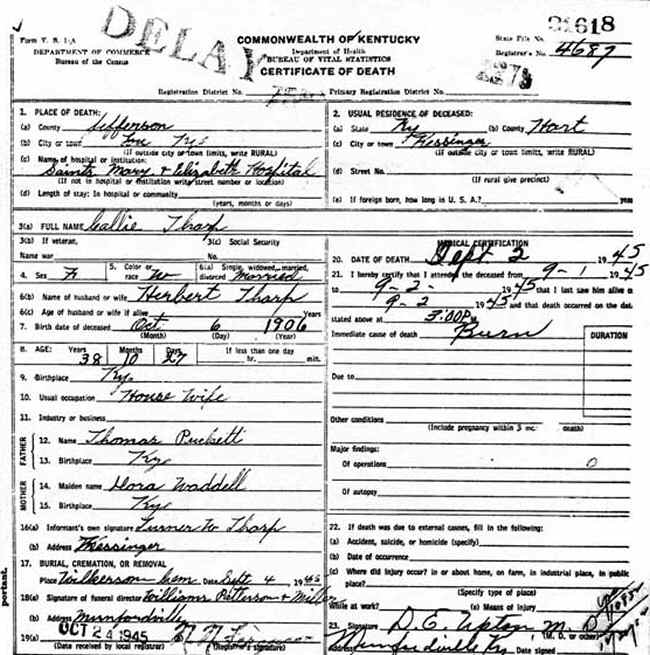 DELAY
31618
Form V. S. 1-A
DEPARTMENT OF COMMERCE
Bureau of the Census
COMMONWEALTH OF KENTUCKY
Department of Health
BUREAU OF VITAL STATISTICS
CERTIFICATE OF DEATH
State File No.
Registrar's No. 4687
Registration District No.
Primary Registration District No.
1. PLACE OF DEATH:
(a) County Jefferson
(b) City or town Lou Ky
(If outside city or town limits, write RURAL)
(c) Name of hospital or institution:
Saints Mary & Elizabeth Hospital
(If not in hospital or institution write street number or location)
(d) Length of stay: In hospital or community
(years, months or days)
2. USUAL RESIDENCE OF DECEASED:
(a) State Ky (b) County Hart
(c) City or town Kessinger
(If outside city or town limits, write RURAL)
(d) Street No.
(If rural give precinct)
(e) If foreign born, how long in U. S. A.? year
3(a) FULL NAME Callie Tharp
3(b) If veteran, 3(c) Social Security
Name war No.
4. Sex F 5. Color or race W 6(a) Single, widowed, married, divorced Married
6(b) Name of husband or wife Herbert Tharp
6(c) Age of husband or wife if alive Years
7. Birth date of deceased Oct 6 1906
(Month) (Day) (Year)
8. AGE: Years Months Days If less than one day
38 10 27 hr. min.
9. Birthplace Ky.
10. Usual occupation House Wife
11. Industry or business
FATHER
12. Name Thomas Puckett
13. Birthplace Ky
MOTHER
14. Maiden name Dora Waddell
15. Birthplace Ky
16(a) Informant's own signature Turner W Tharp
(b) Address Kessinger
17. BURIAL, CREMATION, OR REMOVAL
Place Wilkerson Cem Date Sept 4 1945
18(a) Signature of funeral director Williams Patterson & Miller
(b) Address Munfordville
19(a) OCT 24 1945
(Date received by local registrar) (Registrar's signature)
MEDICAL CERTIFICATION
20. DATE OF DEATH Sept 2 1945
21. I hereby certify that I attended the deceased from 9-1 1945
to 9-2- 1945 that I last saw him alive o
9-2 1945 and that death occurred on the dat
stated above at 3:00P M.
Immediate cause of death Burn
DURATION
Due to
Other conditions
(Include pregnancy within 3 mo death)
Major findings:
Of operations 0
Of autopsy
22. If death was due to external causes, fill in the following:
(a) Accident, suicide, or homicide (specify)
(b) Date of occurrence
(c) Where did injury occur? in or about home, on farm, in industrial place, in public
place?
(Specify type of place)
While at work? (e) Means of injury
23. Signature D. E. Upton M. D.
(M. D. or other)
Address Munfordville Ky Date signed
portant.